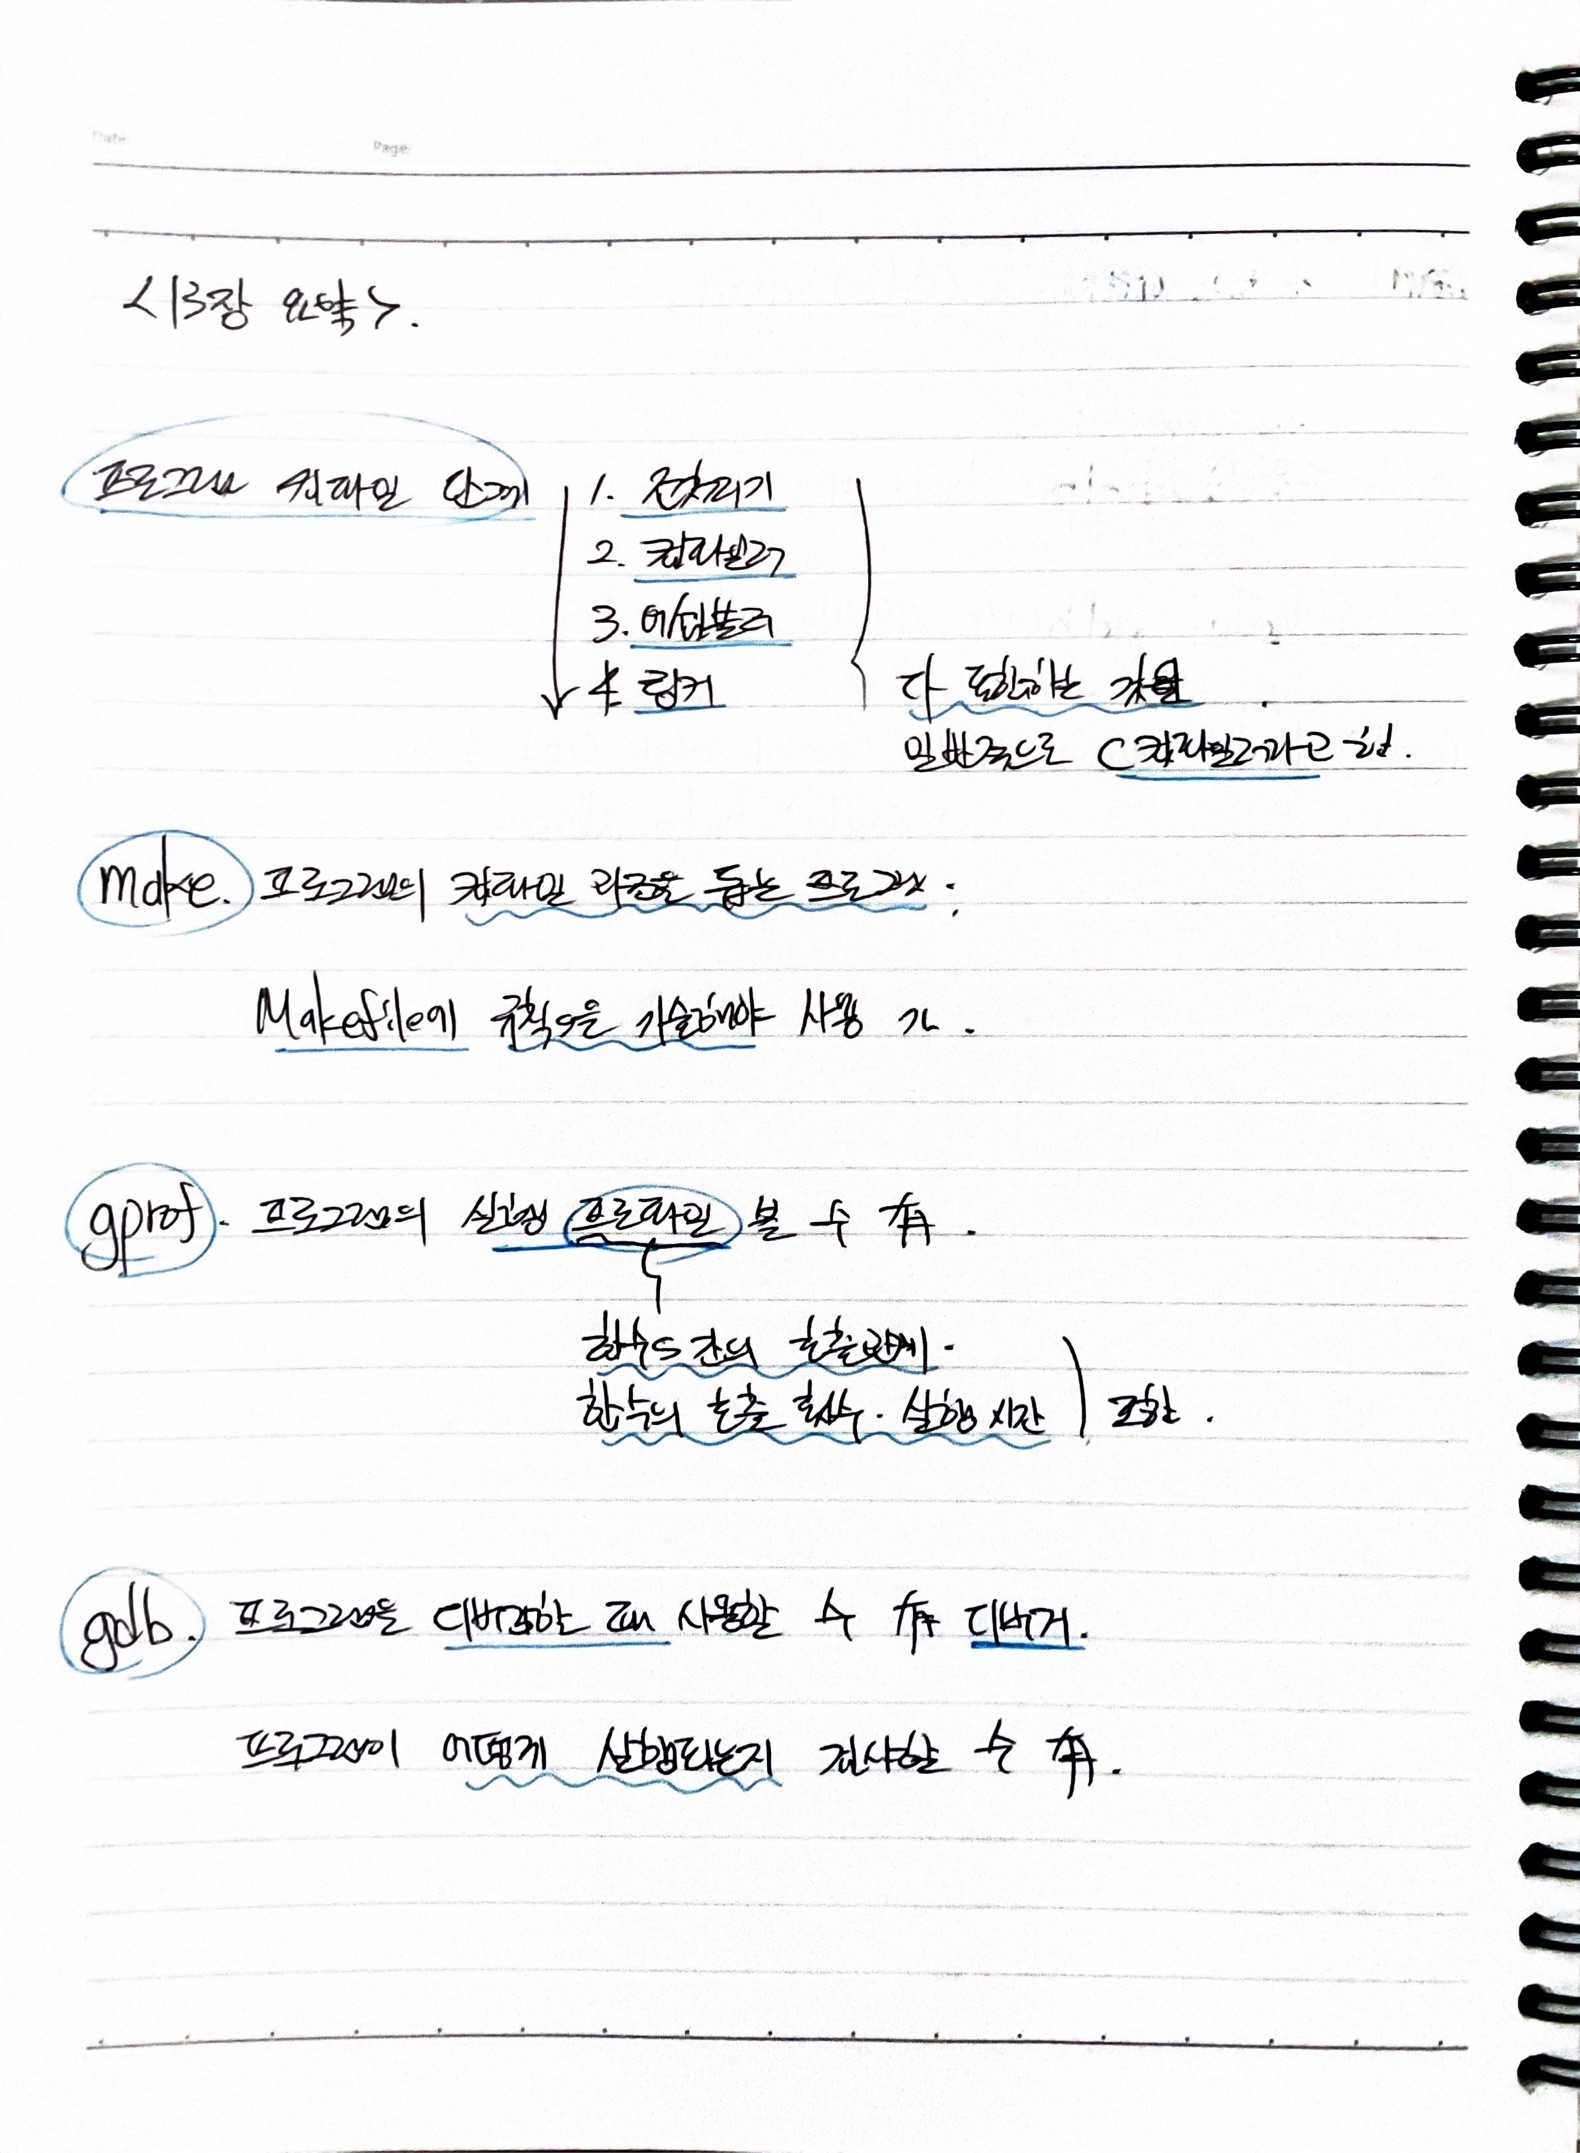 Date.
Page.
<13장 요약>.
프로그램 컴파일 단계
1. 전처리기
2. 컴파일러
3. 어셈블러
4 링커
다 포함하는 것을
일반적으로 C컴파일러라고 함.
make. 프로그램의 컴파일 과정을 돕는 프로그램.
Makefile에 규칙을 기술해야 사용 가.
gprof. 프로그램의 실행 프로파일 볼 수 有.
함수들 간의 호출관계.
함수의 호출 횟수. 실행 시간
포함.
gdb. 프로그램을 디버깅할 때 사용할 수 有 디버거.
프로그램이 어떻게 실행되는지 검사할 수 有.